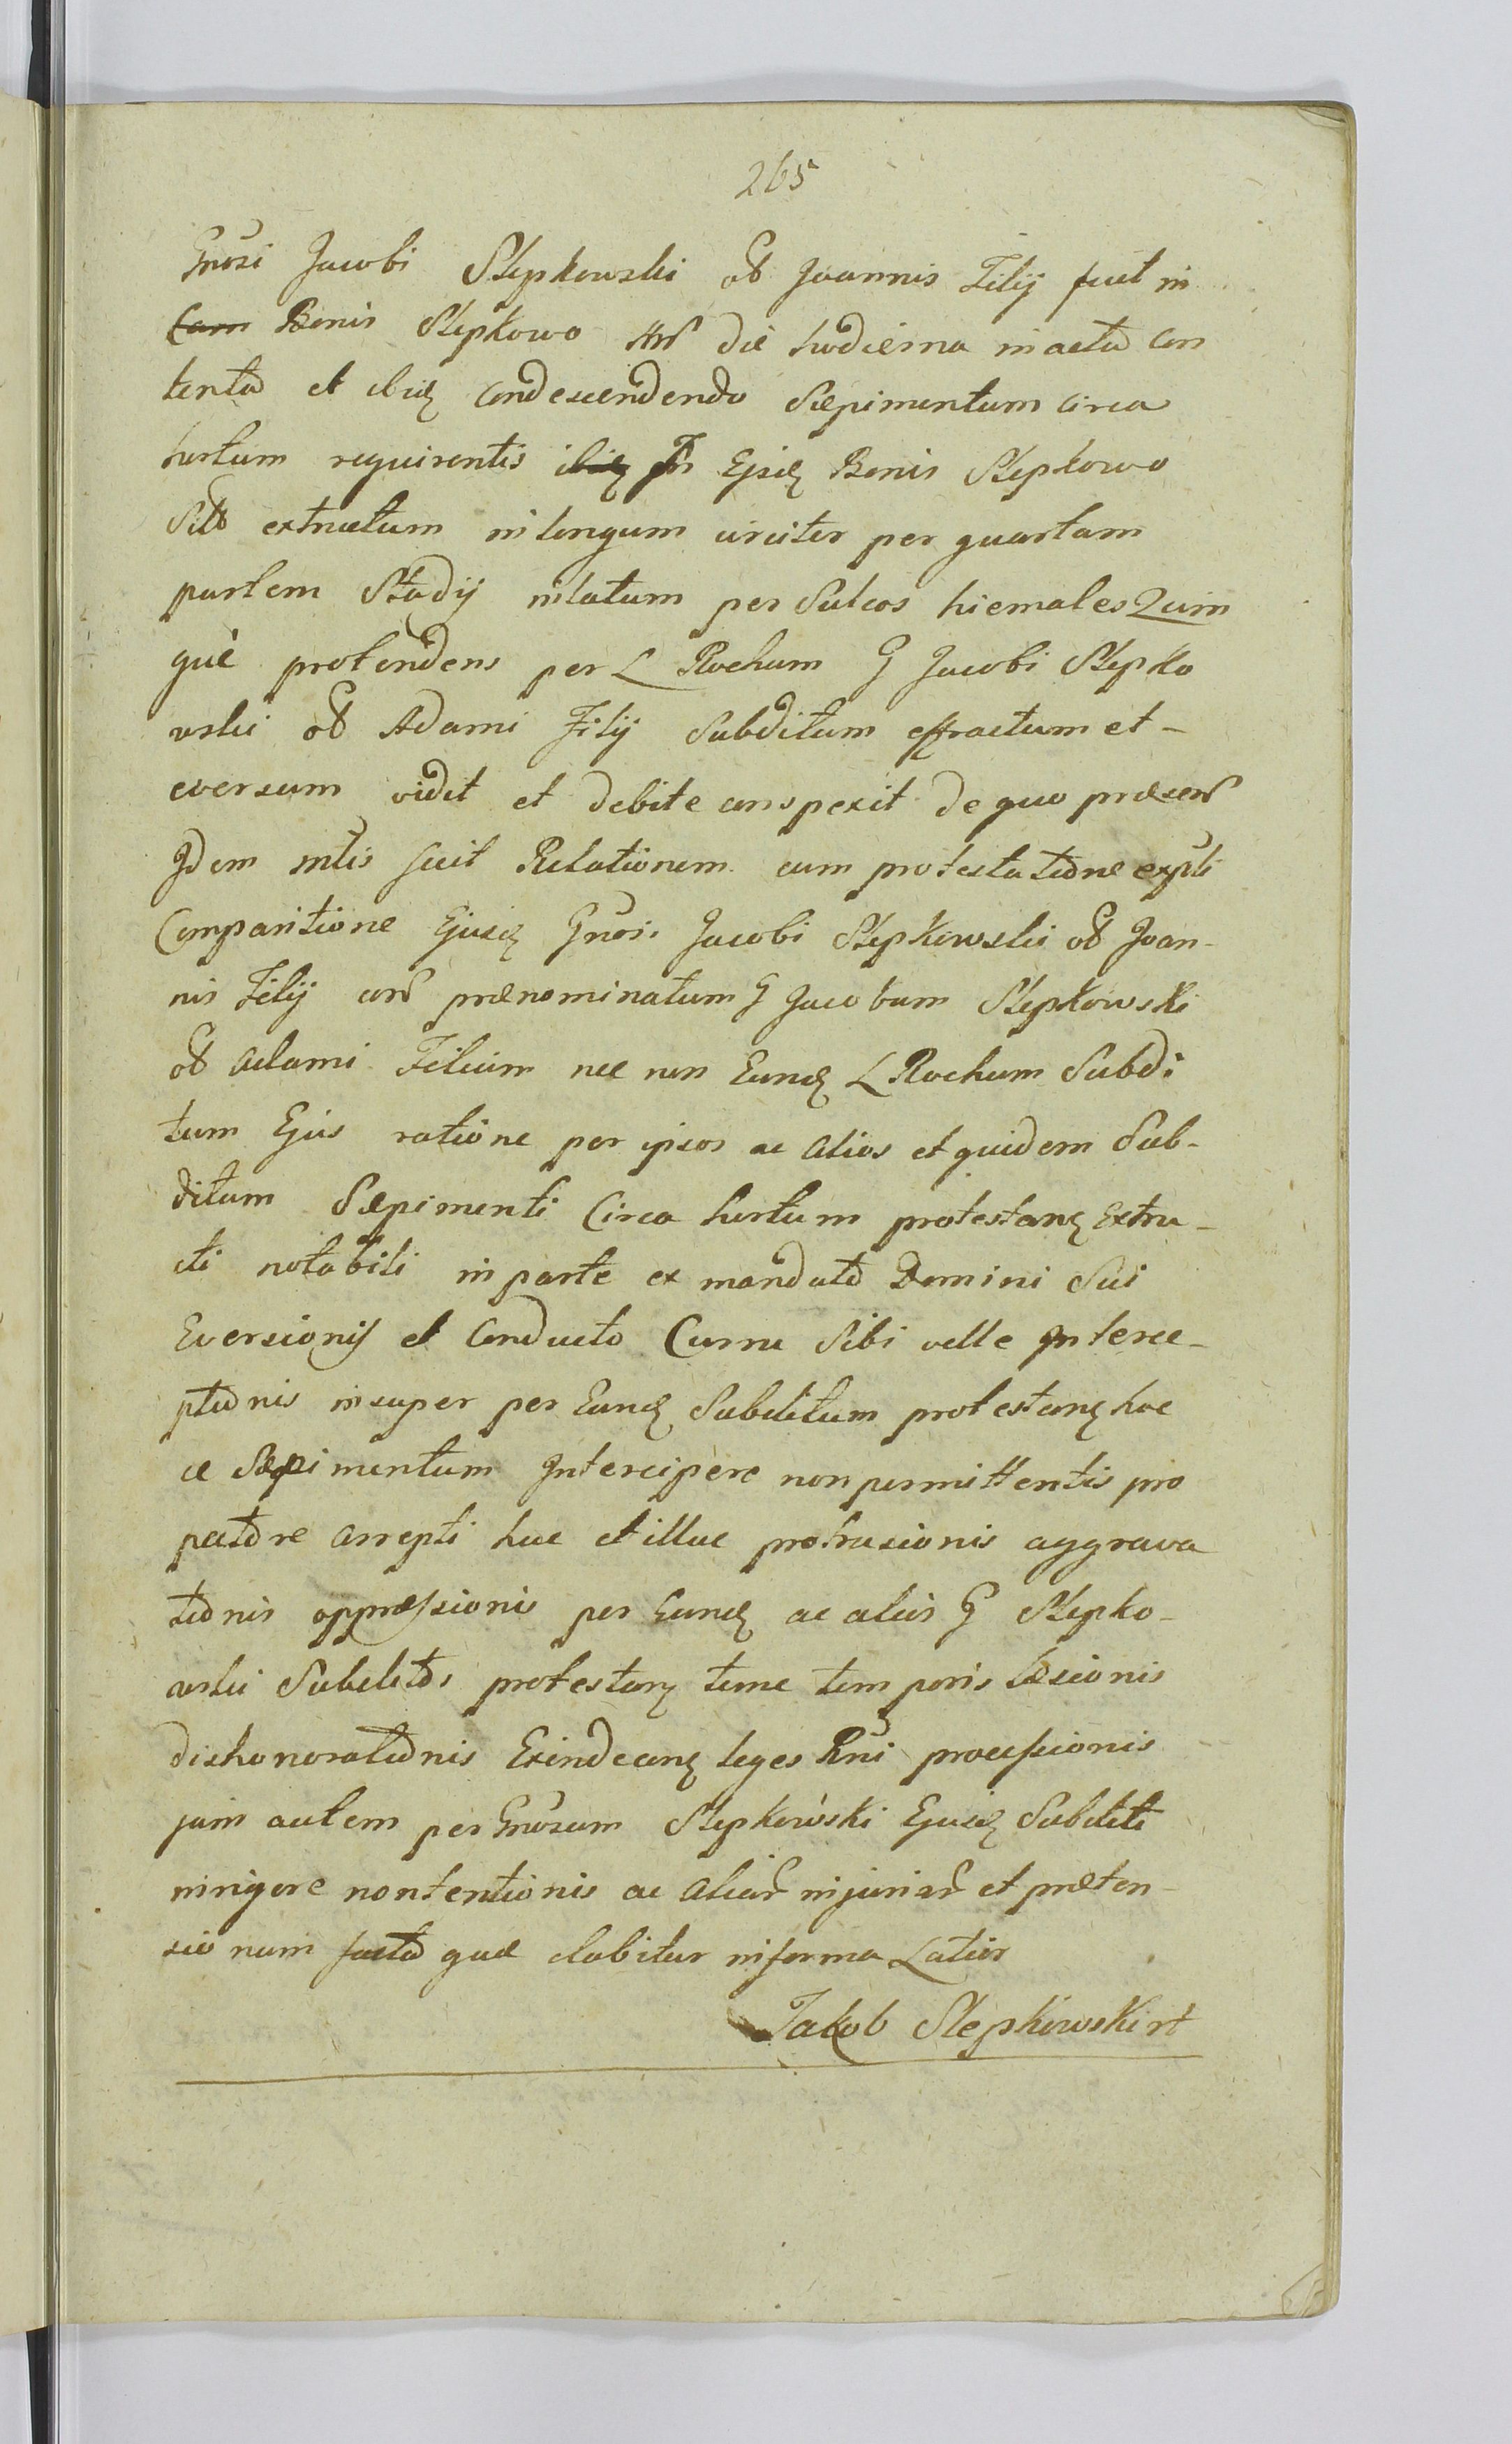 265
Gnosi Jacobi Slepkowski ol Joannis Filij fuit in
Cam Bonis Slepkowo die hodierna in acta con
tenta et ibidq condescendendo Sæpimentum circa
hortum requirentis ibiq in Ejsdq Bonis Slepkowo
Sito extructum in longum circiter per quartam
partem Stadij in latum per Sulcos hiemales Quin
què protendens per L Rochum G Jacobi Slepko
wski ol Adami Filij Subditum effractum et-
eversum vidit et debite conspexit de quo præsens
Idem mtis fecit Relationem cum protestatione expti
Comparitione Ejusdq Gnosi Jacobi Slepkowski ol Joan-
nis Filij con prænominatum G Jacobum Slepkowski
ol Adami Filium nec non Eundq L Rochum Subdi
tum Ejus ratione per ipsos ac alios et quidem Sub-
ditum Sæpimenti Circa hortum protestanq Extru-
cti notabili in parte ex mandato Domini Sui
Eversionis et Conducto Curru Sibi velle Interce-
ptionis insuper per Eundq Subditum protestanq hoc
ce Sæpimentum Intercipere non permittentis pro
pectore arrepti huc et illuc protrusionis aggrava
tionis oppressionis per Eundq ac aliis G Slepko-
wski Subditos protestanq tunc temporis læsionis
dishonorationis Exindeanq leges Rni processionis
jam autem per Gnosum Slepkowski Ejusdq Subditi
in rigore non tentionis ac aliar injuriar et præten-
sionum facta quæ dabitur in forma Latior
Jakob Slepkowski rt